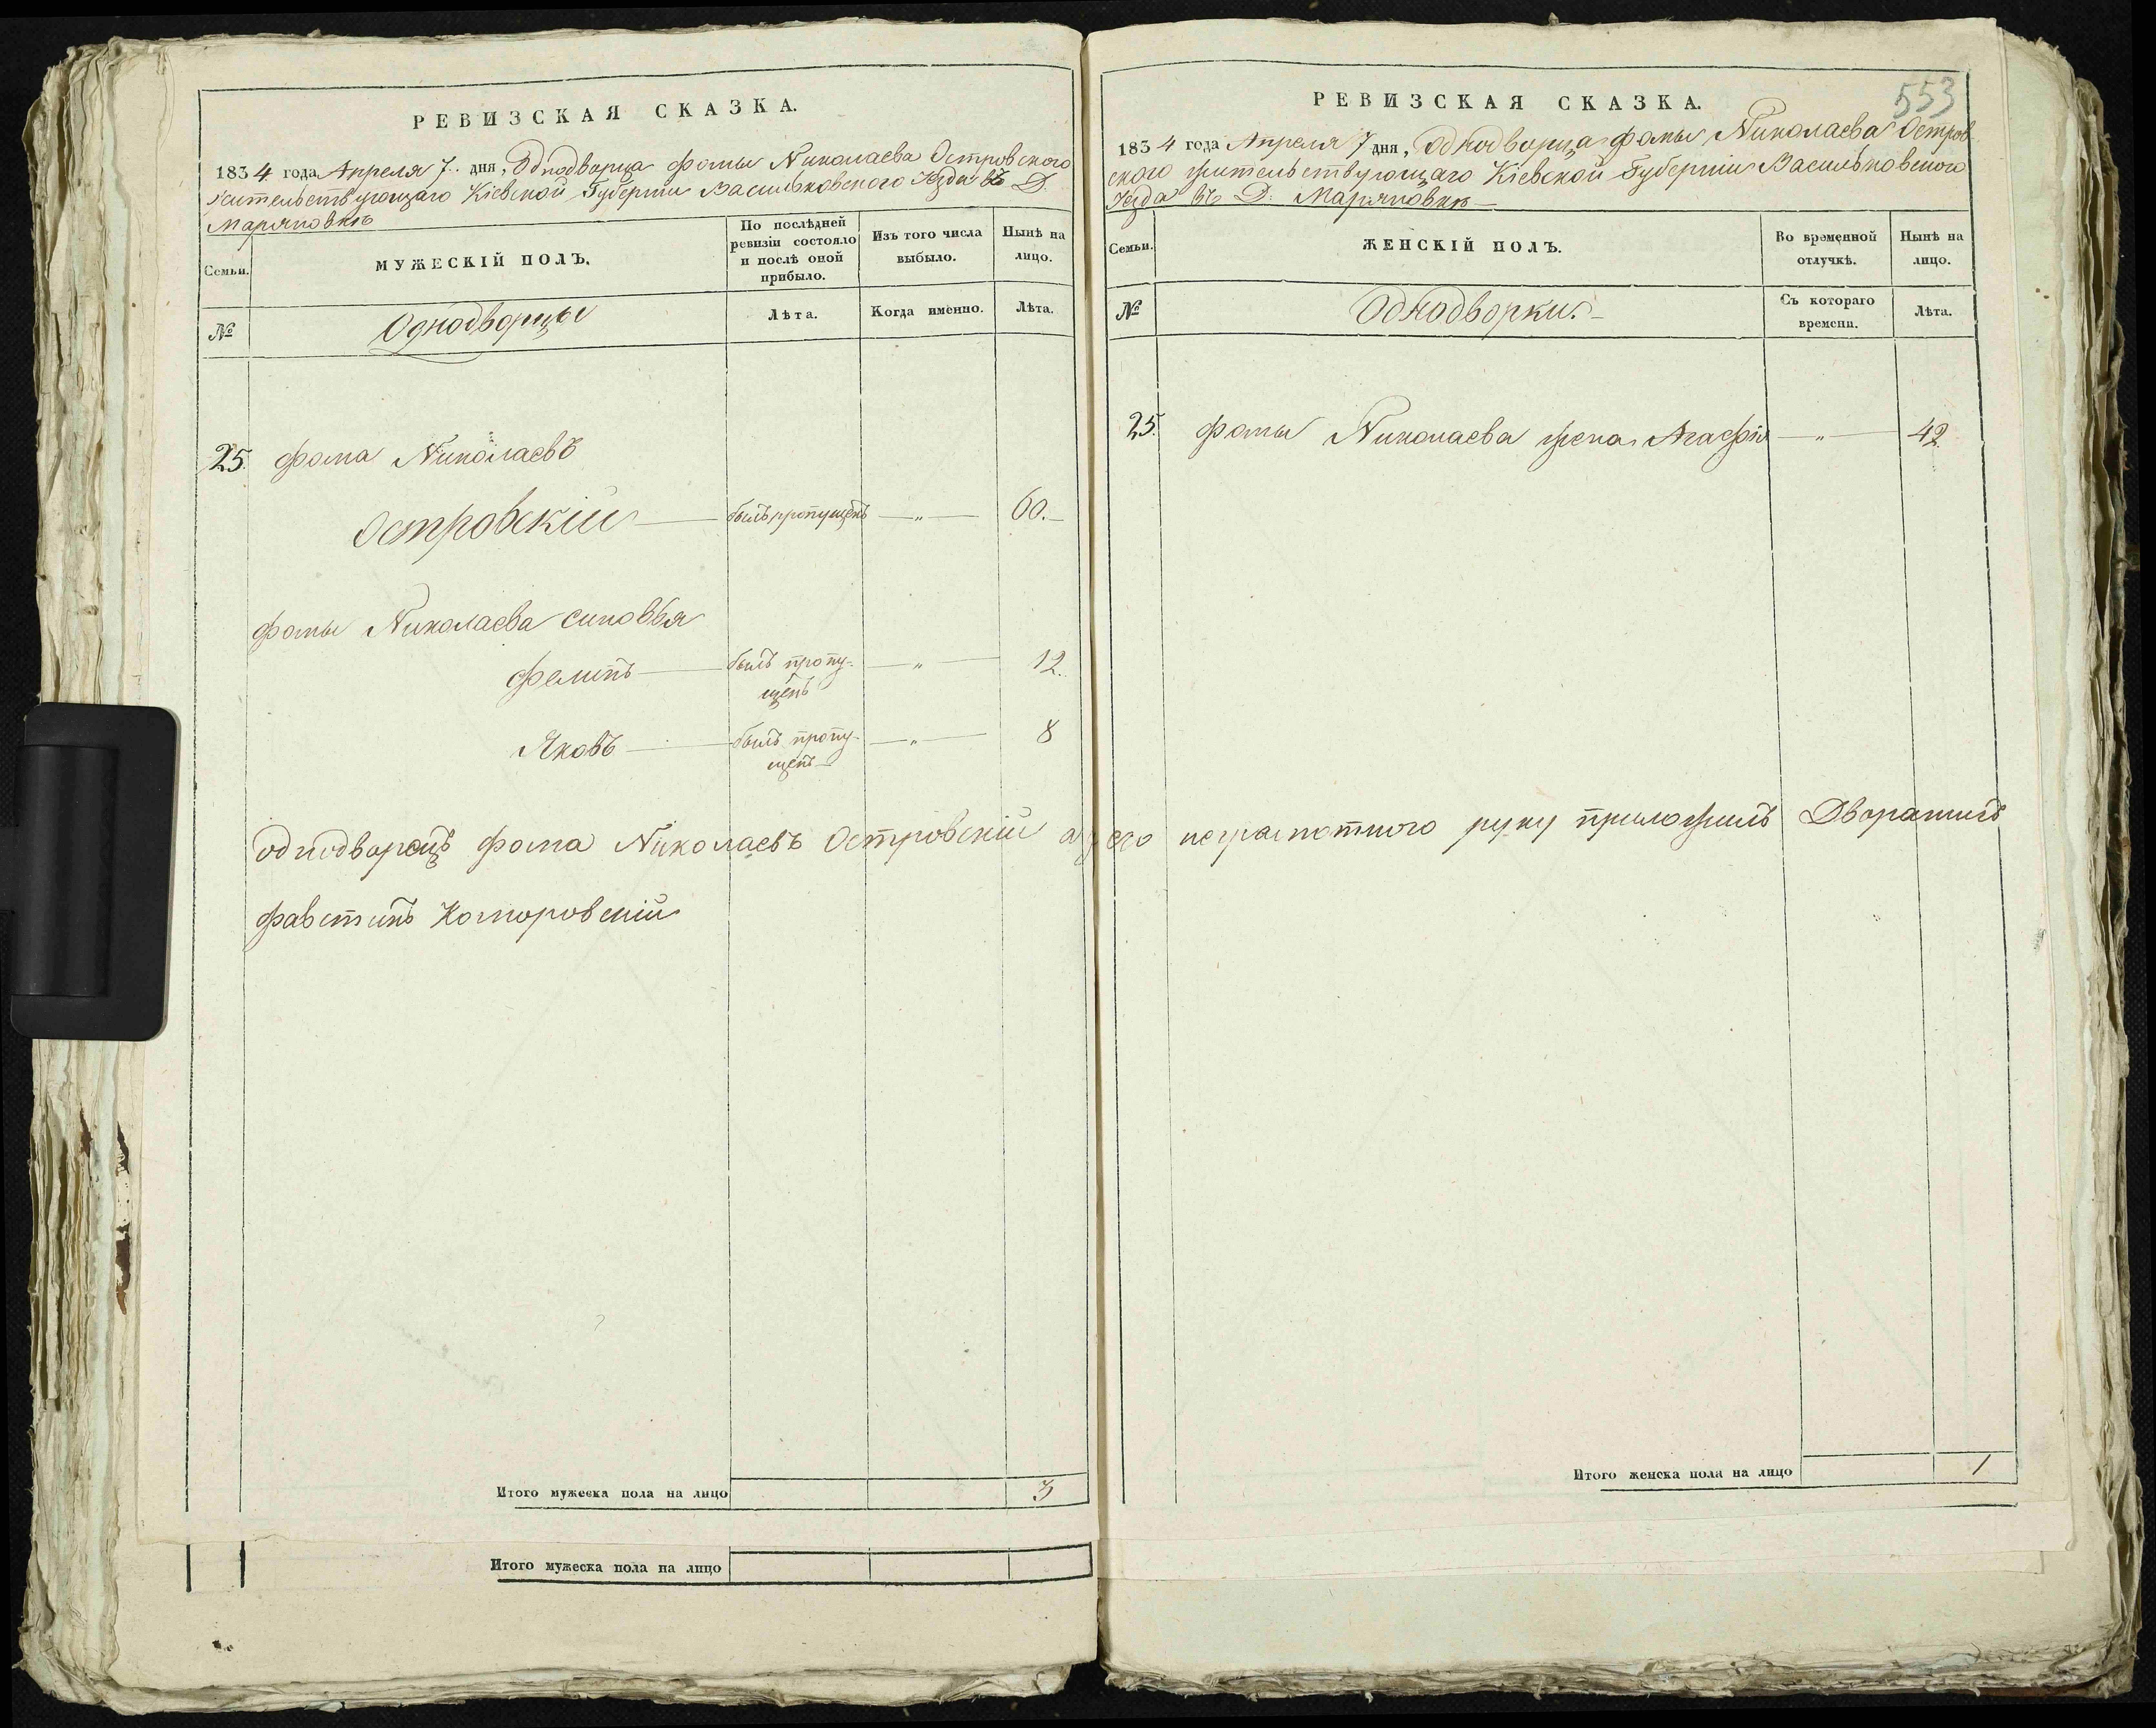 РЕВИЗСКАЯ СКАЗКА.
1834 года Апреля 7. дня, Однодворца Фомы Николаева Островского
жительствующаго Кіевской Губерніи Васильковского Уезда въ Д.
Марьяновке
Семьи.
МУЖЕСКІЙ ПОЛЪ.
По послѣдней
ревизіи состояло
и послѣ оной
прибыло.
Изъ того числа
выбыло.
Нынѣ на
лицо.
№
Однодворцы
Лѣта.
Когда именно.
Лѣта.
25. Фома Николаевъ
Островскій — былъ пропущенъ — „ — 60. —
Фомы Николаева сыновья
Фелипъ — былъ пропу- — „ — 12.
щенъ
Яковъ — былъ пропу- — „ — 8
щенъ
Однодворецъ Фома Николаевъ Островскій а за его неграмотного руку приложилъ Дворянинъ
Фавстинъ Коморовскій
Итого мужеска пола на лицо 3
Итого мужеска пола на лицо
553
РЕВИЗСКАЯ СКАЗКА.
1834 года Апреля 7 дня, Однодворца Фомы Николаева Остров
ского жительствующаго Кіевской Губерніи Васильковского
Уезда въ Д. Марьяновке —
Семьи.
ЖЕНСКІЙ ПОЛЪ.
Во временной
отлучкѣ.
Нынѣ на
лицо.
№
Однодворки. —
Съ котораго
времени.
Лѣта.
25. Фомы Николаева жена Агафія — „ — 42
Итого женска пола на лицо 1